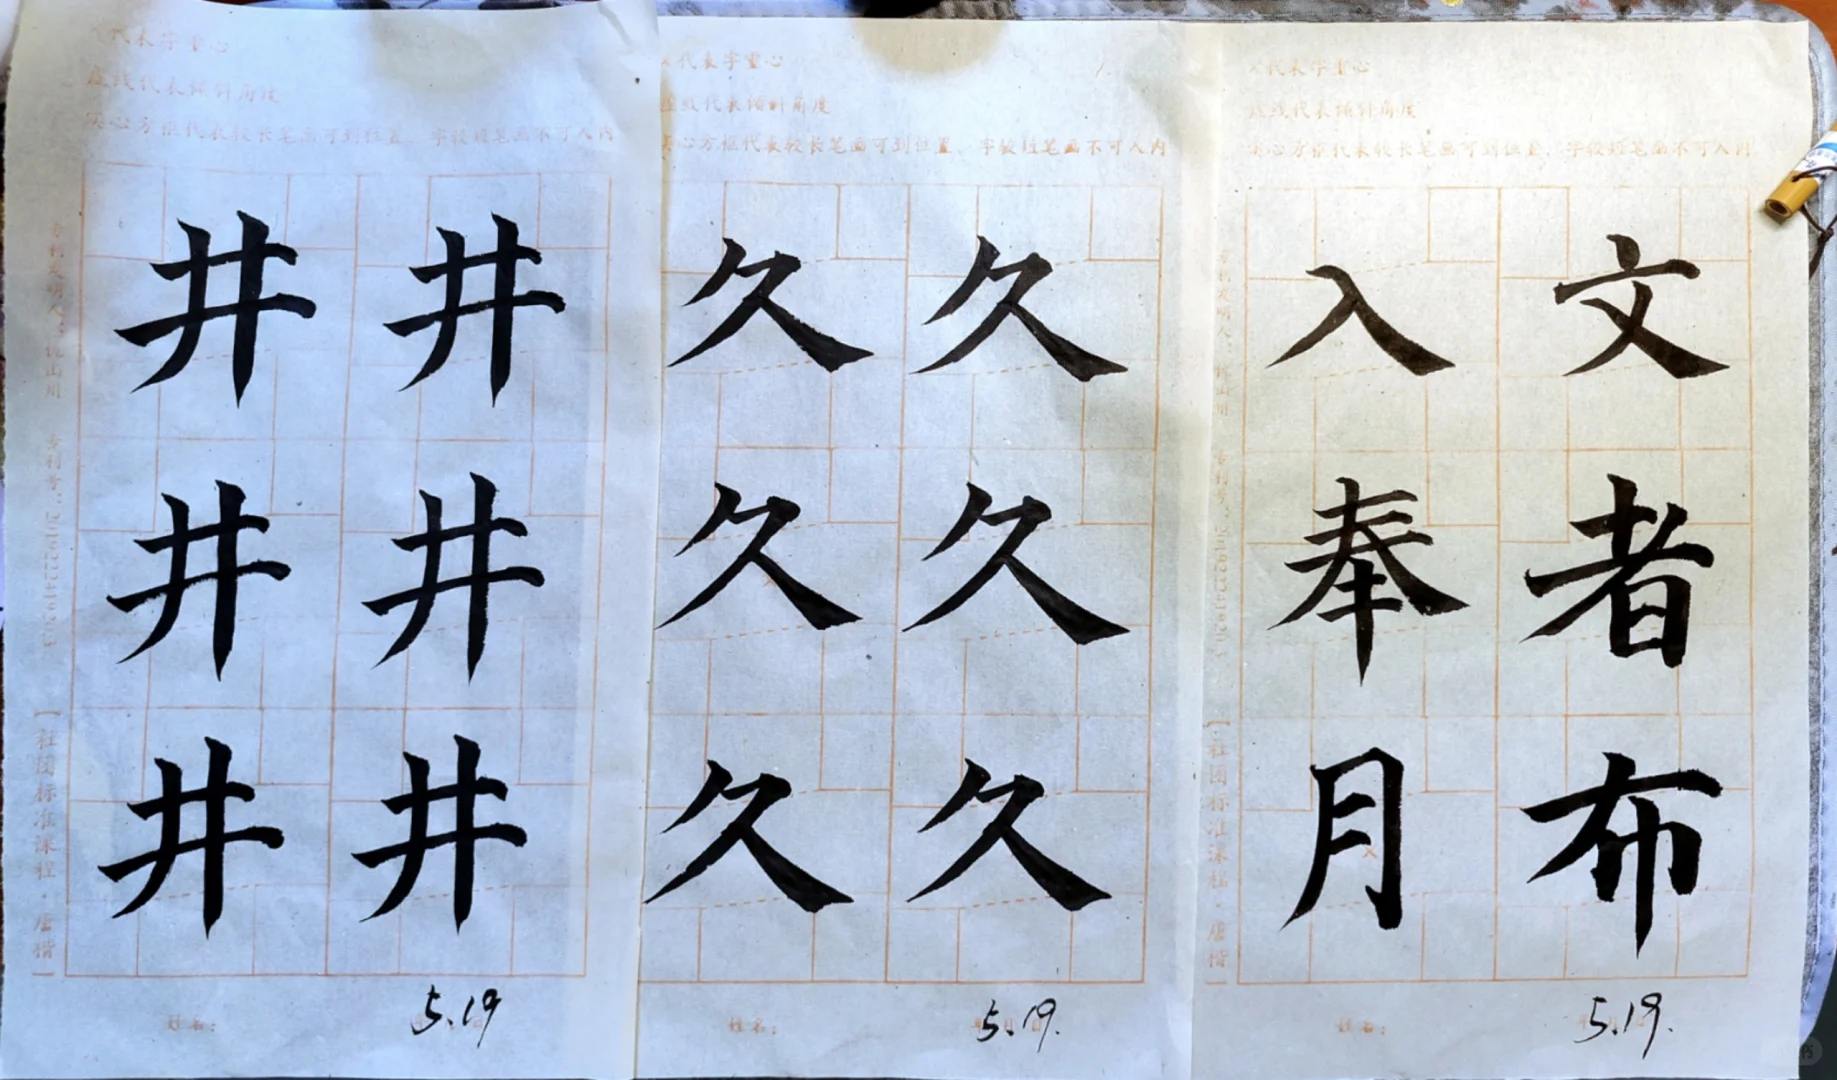 ×代表字重心
虚线代表倾斜角度
实心方框代表较长笔画可到位置、字较短笔画不可入内
井 井
井 井
井 井
【社团标准课程·唐楷】
姓名：
5.19
×代表字重心
虚线代表倾斜角度
实心方框代表较长笔画可到位置、字较短笔画不可入内
久 久
久 久
久 久
姓名：
5.19.
×代表字重心
虚线代表倾斜角度
实心方框代表较长笔画可到位置、字较短笔画不可入内
入 文
奉 者
月 布
【社团标准课程·唐楷】
姓名：
5.19.